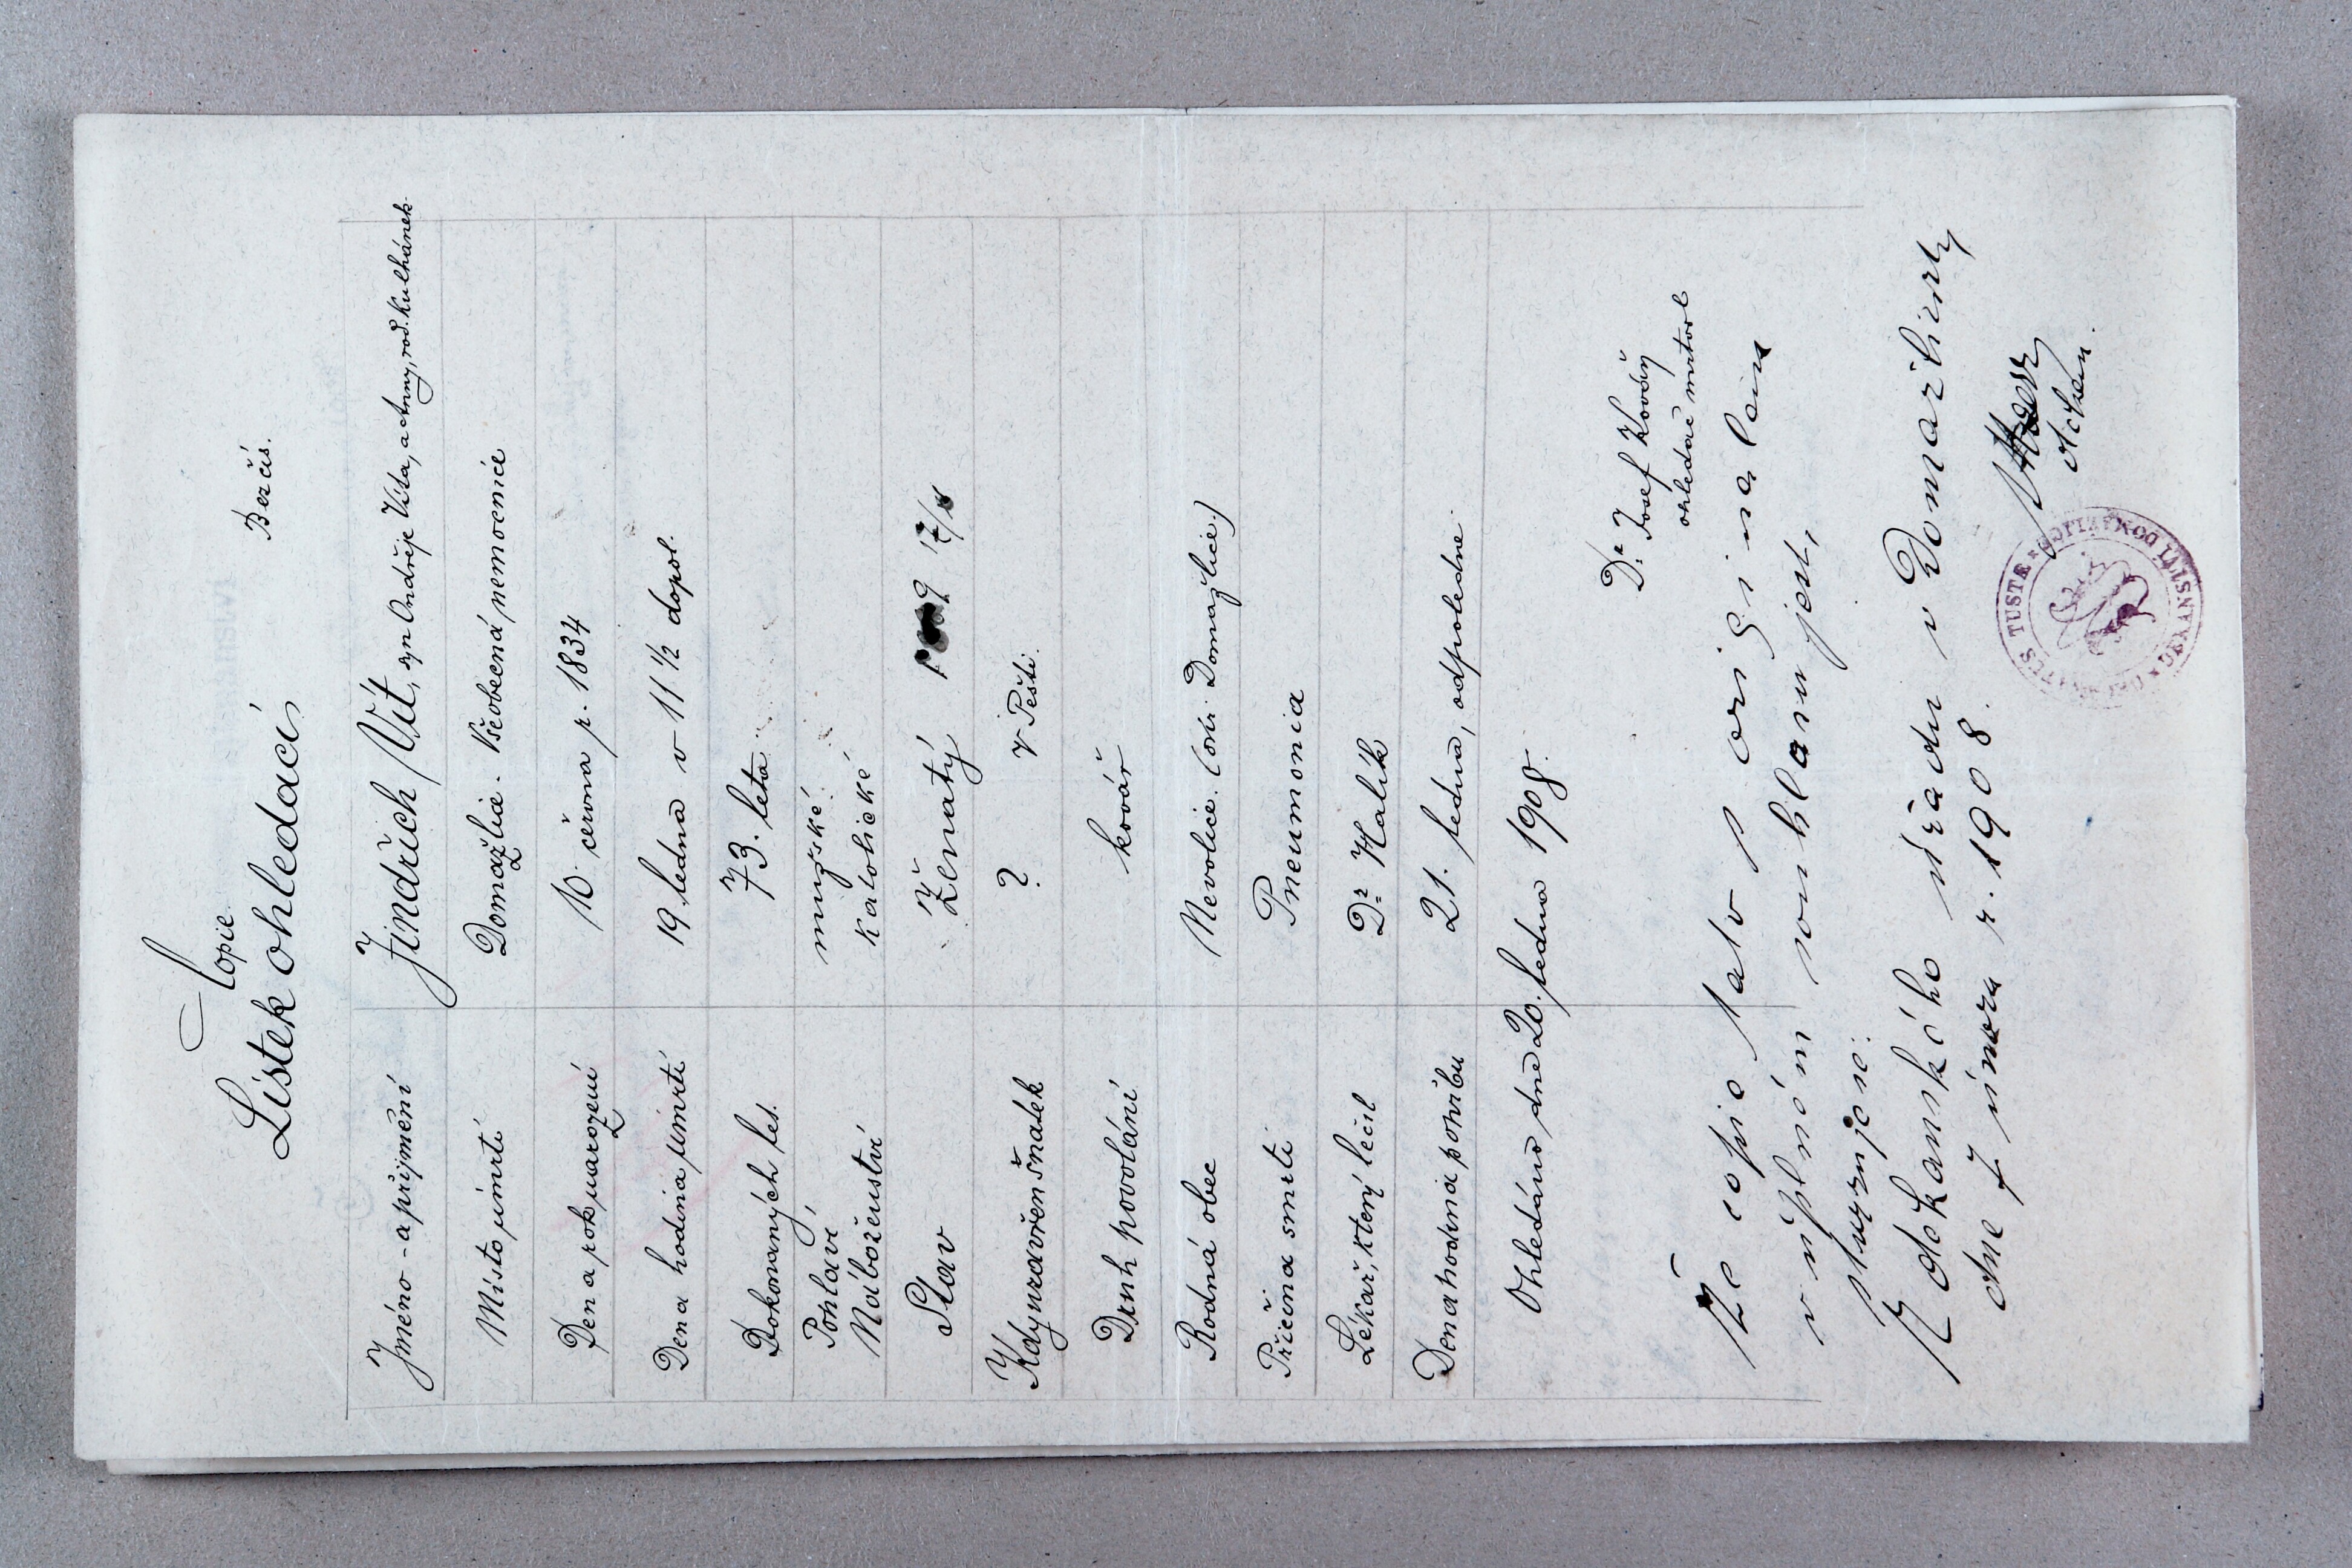 Copie
Lístek ohledací
Bez čís.
Jméno - a přijmění Jindřich Vít, syn Ondřeje Víta, a Anny, rod. Kulhánek
Místo úmrtí Domažlice. Všeobecná nemocnice
Den a rok narození 10. června r. 1834
Den a hodina úmrtí 19 ledna v 11 ½ dopol.
Dokonaných let. 73. léta
Pohlaví mužské
Náboženství katolické
Stav Ženatý 17/8
Kdy uzavřen šnatek ? v Pešti.
Druh povolání kovář
Rodná obec Nevolice. (Domažlice.)
Přiečina smrti Pneumonia
Lékař, který léčil Dr Halík
Den a hodina pohřbu 21. ledna, odpoledne.
Ohledáno dne 20. ledna 1908.
Dr Josef
ohledač mrtvol
Že copie tato s originalem
v úplném souhlasu jest,
stvrzuje se:
Z děkanského úřadu v Domažlicích,
dne 7 února r. 1908.
děkan.
TUSTÆ * DĚKANSTVÍ DOMAŽLICE *